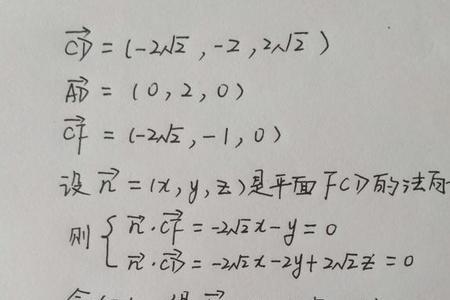 CD→ = (-2√2, -2, 2√2)
AD→ = (0, 2, 0)
CF→ = (-2√2, -1, 0)
设 n→ = (x, y, z) 是平面 FCD 的法向
则 { n→·CF→ = -2√2x - y = 0
n→·CD→ = -2√2x - 2y + 2√2z = 0